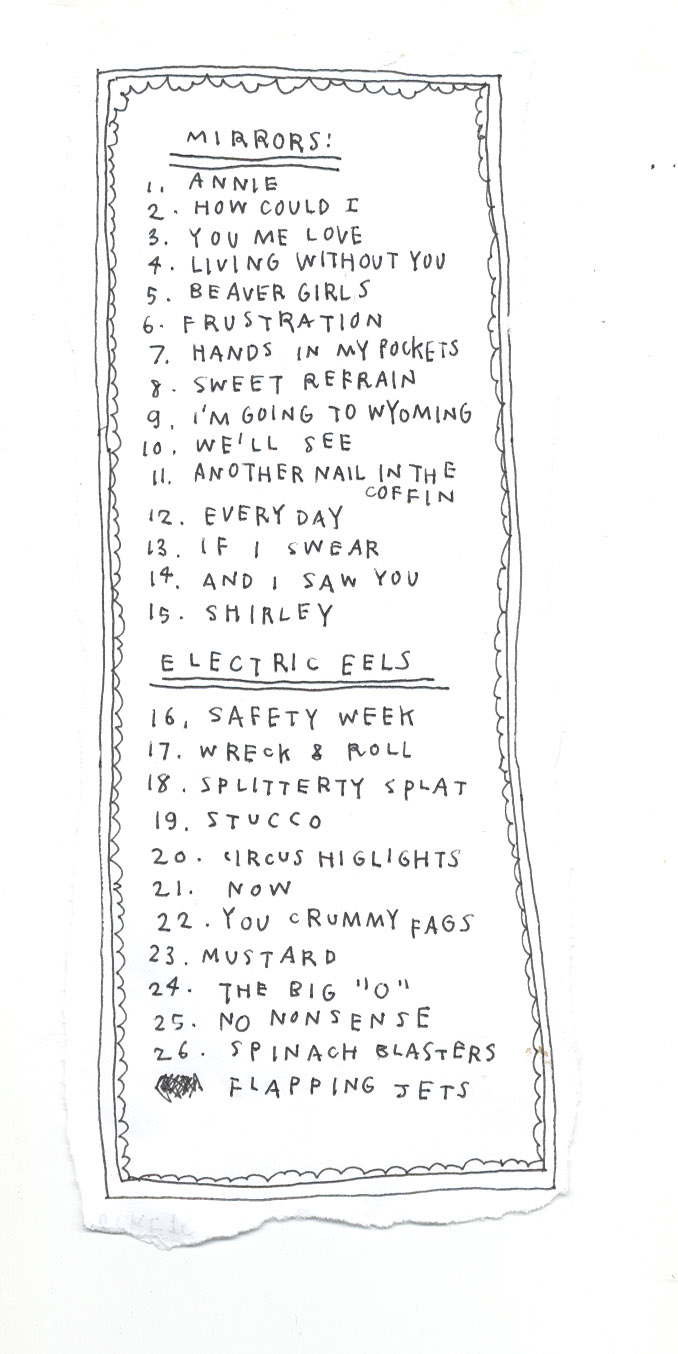 MIRRORS!
1. ANNIE
2. HOW COULD I
3. YOU ME LOVE
4. LIVING WITHOUT YOU
5. BEAVER GIRLS
6. FRUSTRATION
7. HANDS IN MY POCKETS
8. SWEET REFRAIN
9. I'M GOING TO WYOMING
10. WE'LL SEE
11. ANOTHER NAIL IN THE
COFFIN
12. EVERY DAY
13. IF I SWEAR
14. AND I SAW YOU
15. SHIRLEY
ELECTRIC EELS
16. SAFETY WEEK
17. WRECK & ROLL
18. SPLITTERTY SPLAT
19. STUCCO
20. CIRCUS HIGLIGHTS
21. NOW
22. YOU CRUMMY FAGS
23. MUSTARD
24. THE BIG "O"
25. NO NONSENSE
26. SPINACH BLASTERS
FLAPPING JETS